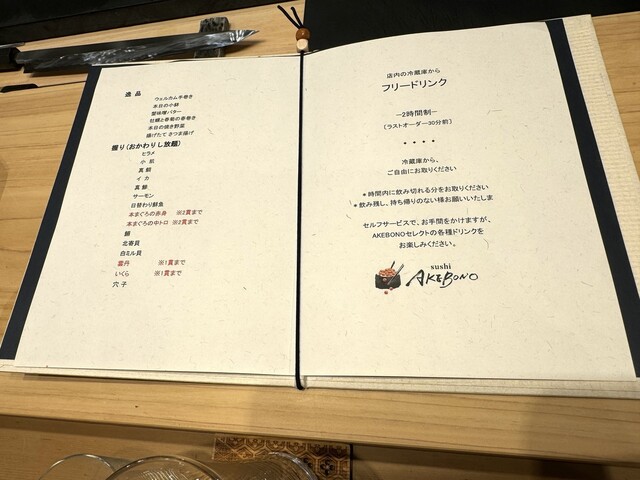 逸品
ウェルカム手巻き
本日の小鉢
蟹味噌バター
牡蠣と春菊の春巻き
本日の焼き野菜
揚げたて さつま揚げ
握り(おかわりし放題)
ヒラメ
小肌
真鯛
イカ
真鯵
サーモン
日替わり鮮魚
本まぐろの赤身 ※2貫まで
本まぐろの中トロ ※2貫まで
鯖
北寄貝
白ミル貝
雲丹 ※1貫まで
いくら ※1貫まで
穴子
店内の冷蔵庫から
フリードリンク
―2時間制―
〔ラストオーダー30分前〕
・・・・
冷蔵庫から、
ご自由にお取りください
*時間内に飲み切れる分をお取りください
*飲み残し、持ち帰りのない様お願いいたしま
セルフサービスで、お手間をかけますが、
AKEBONOセレクトの各種ドリンクを
お楽しみください。
sushi
AKEBONO